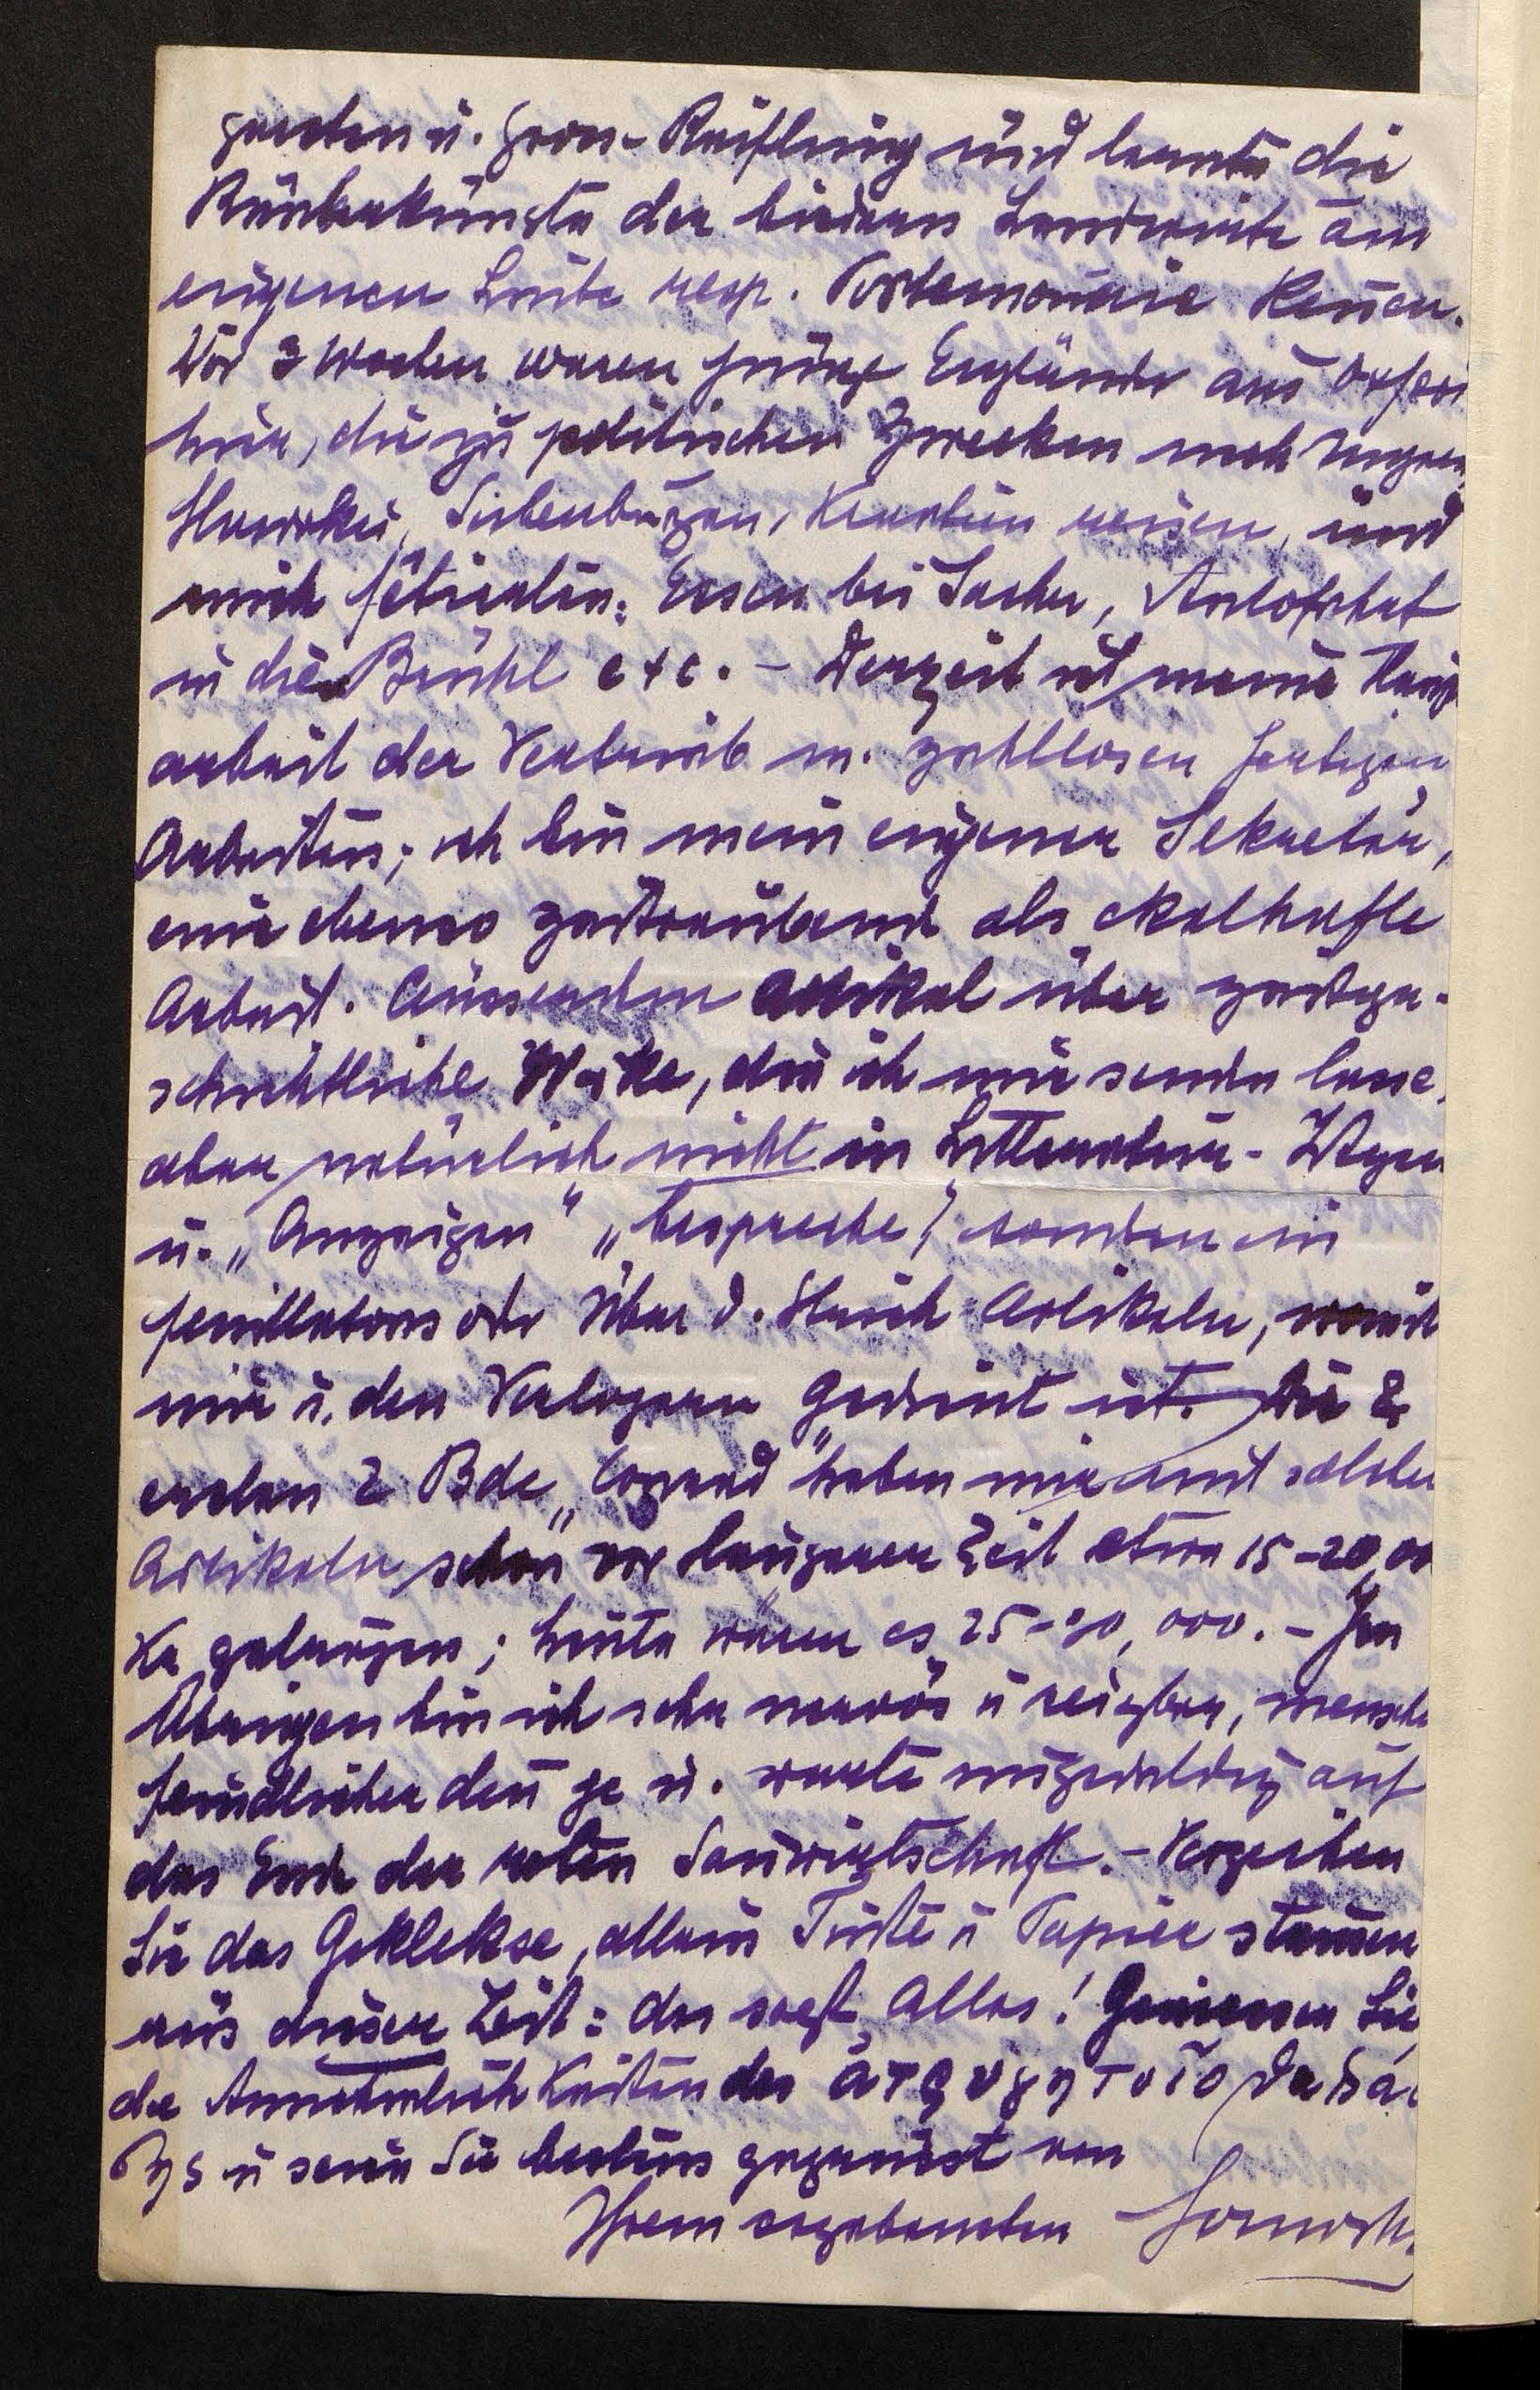 u. Gross-Reifling und lernte die
Räuberkünste der biedern Landwirte am
eigenen Leibe resp. Portemonnaie kennen.
Vor 3 Wochen waren junge Engländer aus Oxford
hier, die zu politischen Zwecken nach Ungarn,
Slowakei, Siebenbürgen, Kroatien reisen, und
mich fêtierten: Essen bei Sacher, Autofahrt
in die Brühl etc. – Derzeit ist meine Haupt
arbeit der Vertrieb m. zahllosen fertigen
Arbeiten; ich bin mein eigener Sekretär,
eine ebenso zeitraubende als ekelhafte
Arbeit. Ausserdem Artikel über zeitge-
schichtliche Werke, die ich mir senden lasse,
aber natürlich nicht in Litteratur-
u. „Anzeigen" „bespreche", sondern in
Feuilletons oder Über d. Strich-Artikeln, womit
mir u. den Verlegern gedient ist. Die
ersten 2 Bde „Conrad" haben mir mit solchen
Artikeln schon vor längerer Zeit etwa 15–20,00
Kr getragen; heute wären es 25–30,000. – Im
Übrigen bin ich sehr nervös u reizbar, menschen
feindlicher denn je u. warte ungeduldig auf
das Ende der roten Sauwirtschaft. – Verzeihen
Sie das Geklekse, allein Tinte u Papier stammen
aus dieser Zeit: das sagt Alles! Geniessen Sie
die Annehmlichkeiten des ἀτρυγήτοιο θαλάσ
σης u seien Sie bestens gegrüsst von
Ihrem ergebensten